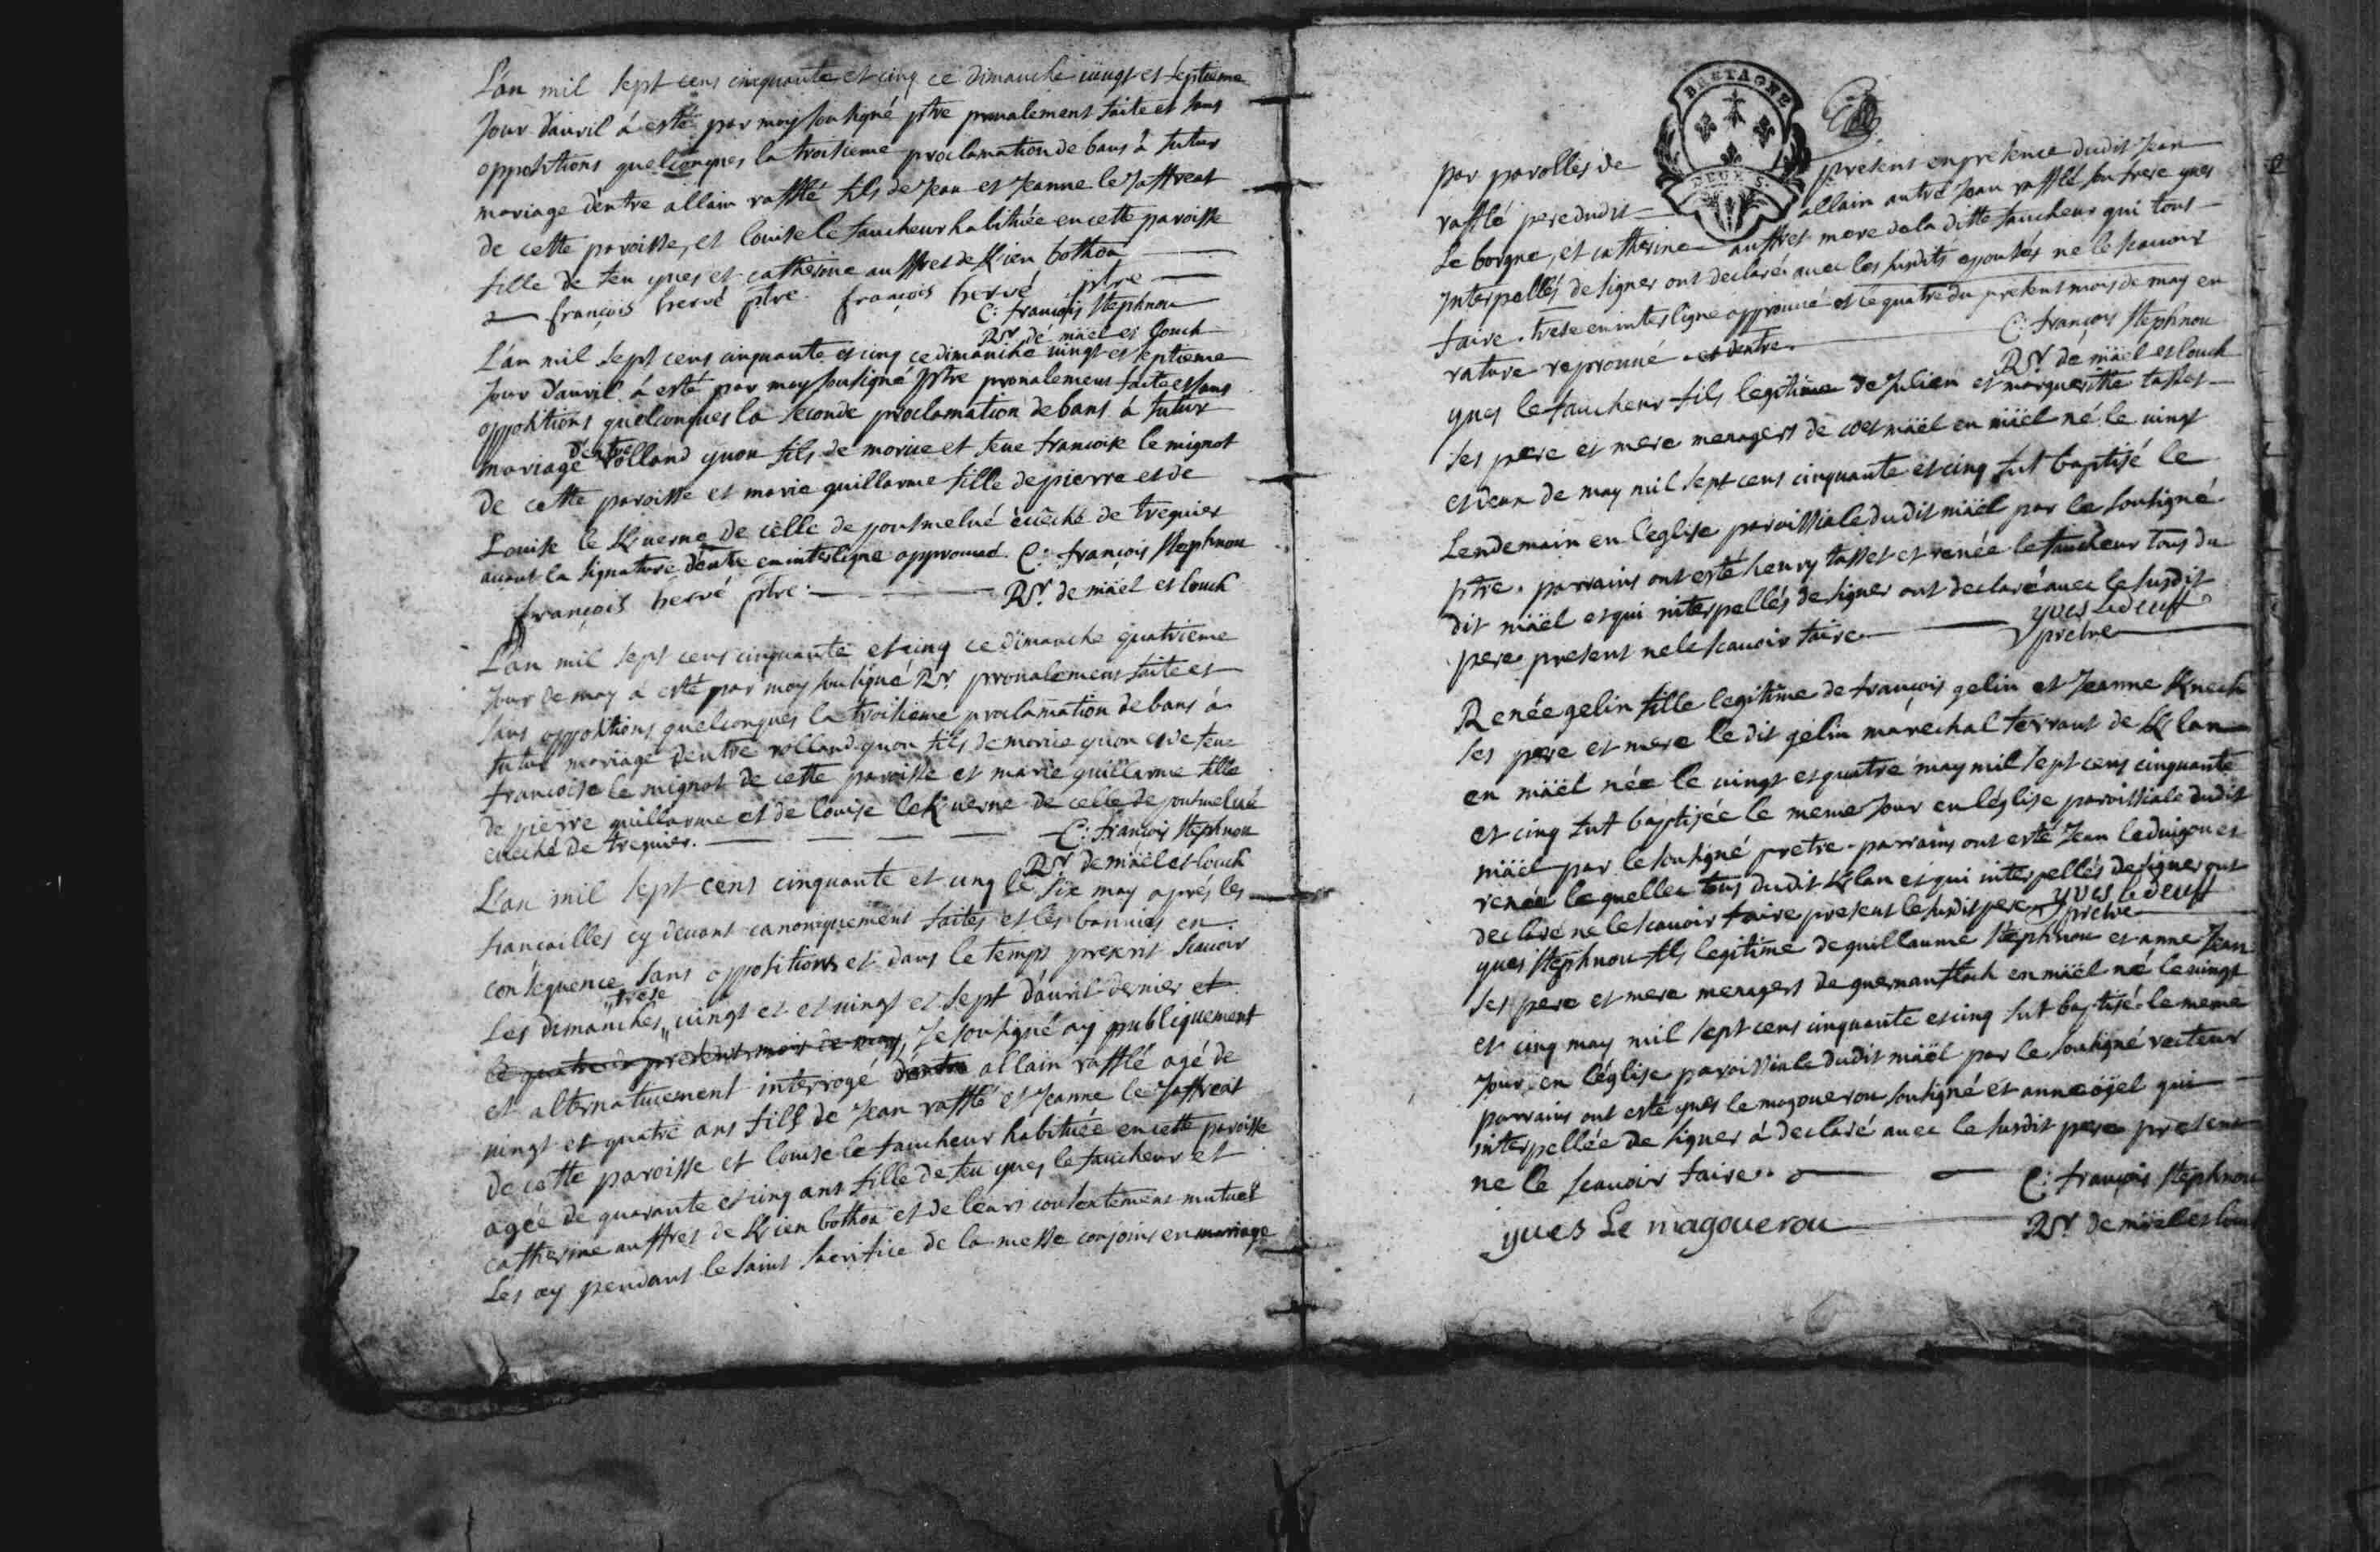 L'an mil sept cens cinquante et cinq ce dimanche vingt et septieme
jour d'auril á esté par moy soussigné ptre pronalement faite et sans
oppositions quelconques la troisieme proclamation de bans á futur
mariage d'entre allain rafflé fils de Jean et Jeanne le Jaffreat
de cette paroisse, et louise le faucheur habituée en cette paroisse
fille de feu yues et catherine auffret de Krien bothoa
françois hervé ptre. françois hervé ptre
C: françois Stephnou
Rr. de mäel et louch
L'an mil sept cens cinquante et cinq ce dimanche vingt et septieme
jour d'auril á esté par moy soussigné Ptre pronalement faite et sans
oppositions quelconques la seconde proclamation de bans á futur
mariage d'entre rolland quon fils de morice et feue francoise le mignot
de cette paroisse et marie guillarme fille de pierre et de
Louise le Kuerne de celle de pontmelué éuéché de treguier
auant la signature d'entre en interligne approuué. C: françois Stephnou
françois hervé ptre. Rr. de mäel et louch
L'an mil sept cens cinquante et cinq ce dimanche quatrieme
jour de may á esté par moy soussigné Rr. pronalement faite et
sans oppositions quelconques la troisieme proclamation de bans á
futur mariage d'entre rolland quon fils de morice quon et de feue
francoise le mignot de cette paroisse et marie guillarme fille
de pierre guillarme et de louise le Kuerne de celle de pontmelué
éueché de treguier. C: françois Stephnou
Rr. de mäel et louch
L'an mil sept cens cinquante et cinq le six may aprés les
fiançailles cy deuant canoniquement faites et les bannies en
conséquence sans oppositions et dans le temps present scauoir
Les dimanches trese vingt et et vingt et sept d'auril dernier et
le quatre du present mois de may, Je soussigné ay publiquement
et alternatiuement interrogé d'entre allain rafflé agé de
vingt et quatre ans fils de Jean rafflé et Jeanne le Jaffreat
de cette paroisse et louise le faucheur habituée en cette paroisse
agée de quarante et cinq ans fille de feu yues le faucheur et
catherine auffret de Krien bothoa et de leurs consentemens mutuel
Les ay pendant le saint sacrifice de la messe conjoins en mariage
BRETAGNE
DEUX S.
par parolles de present en presence dudit Jean
rafflé pere dudit allain autre Jean rafflé son frere yues
Le borgne, et catherine auffret mere de la ditte faucheur qui tous
Interpellés de signer ont declaré auec les susdits epousés ne le scauoir
faire. trese en interligne approuué et le quatre du present mois de may en
rature reprouué et d'entre. C: françois Stephnou
Rr. de mäel et louch
yues le faucheur fils legitime de Julien et margueritte tasset
ses pere et mere menagers de coet mäel en mäel né le vingt
et deux de may mil sept cens cinquante et cinq fut baptisé le
Lendemain en l'eglise paroissiale dudit mäel par le soussigné
ptre. parrains ont esté henry tasset et renée le faucheur tous du
dit mäel et qui interpellés de signer ont declaré auec le susdit
pere present ne le scauoir faire. yues Le deuff
prêtre
Renée gelin fille legitime de françois gelin et Jeanne Knech
ses pere et mere le dit gelin marechal ferrant de K lan
en mäel née le vingt et quatre may mil sept cens cinquante
et cinq fut baptisée le meme jour en l'église paroissiale dudit
mäel par le soussigné pretre. parrains ont esté Jean le duigou et
renée le quellec tous dudit K lan et qui interpellés de signer ont
declaré ne le scauoir faire present le susdit pere. yues Le deuff
prêtre
yues Stephnou fils legitime de guillaume Stephnou et anne Jean
ses pere et mere menagers de en mäel né le vingt
et cinq may mil sept cens cinquante et cinq fut baptisé le meme
jour en l'église paroissiale dudit mäel par le soussigné recteur
parrains ont esté yues le magouerou soussigné et anne qui
interpellée de signer á declaré auec le susdit pere present
ne le scauoir faire. C: françois Stephnou
yues Le magouerou Rr. de mäel et louch